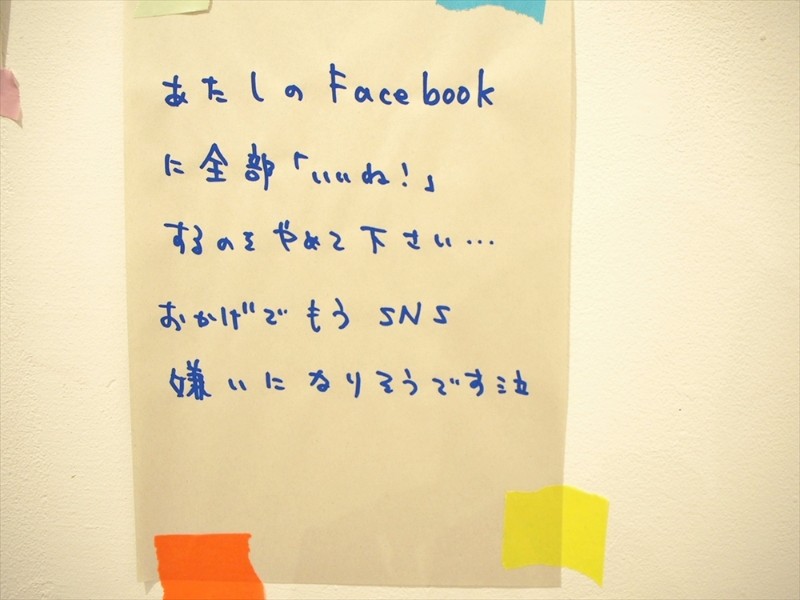 あたしのFacebook
に全部「いいね!」
するのをやめて下さい…
おかげでもうSNS
嫌いになりそうです泣